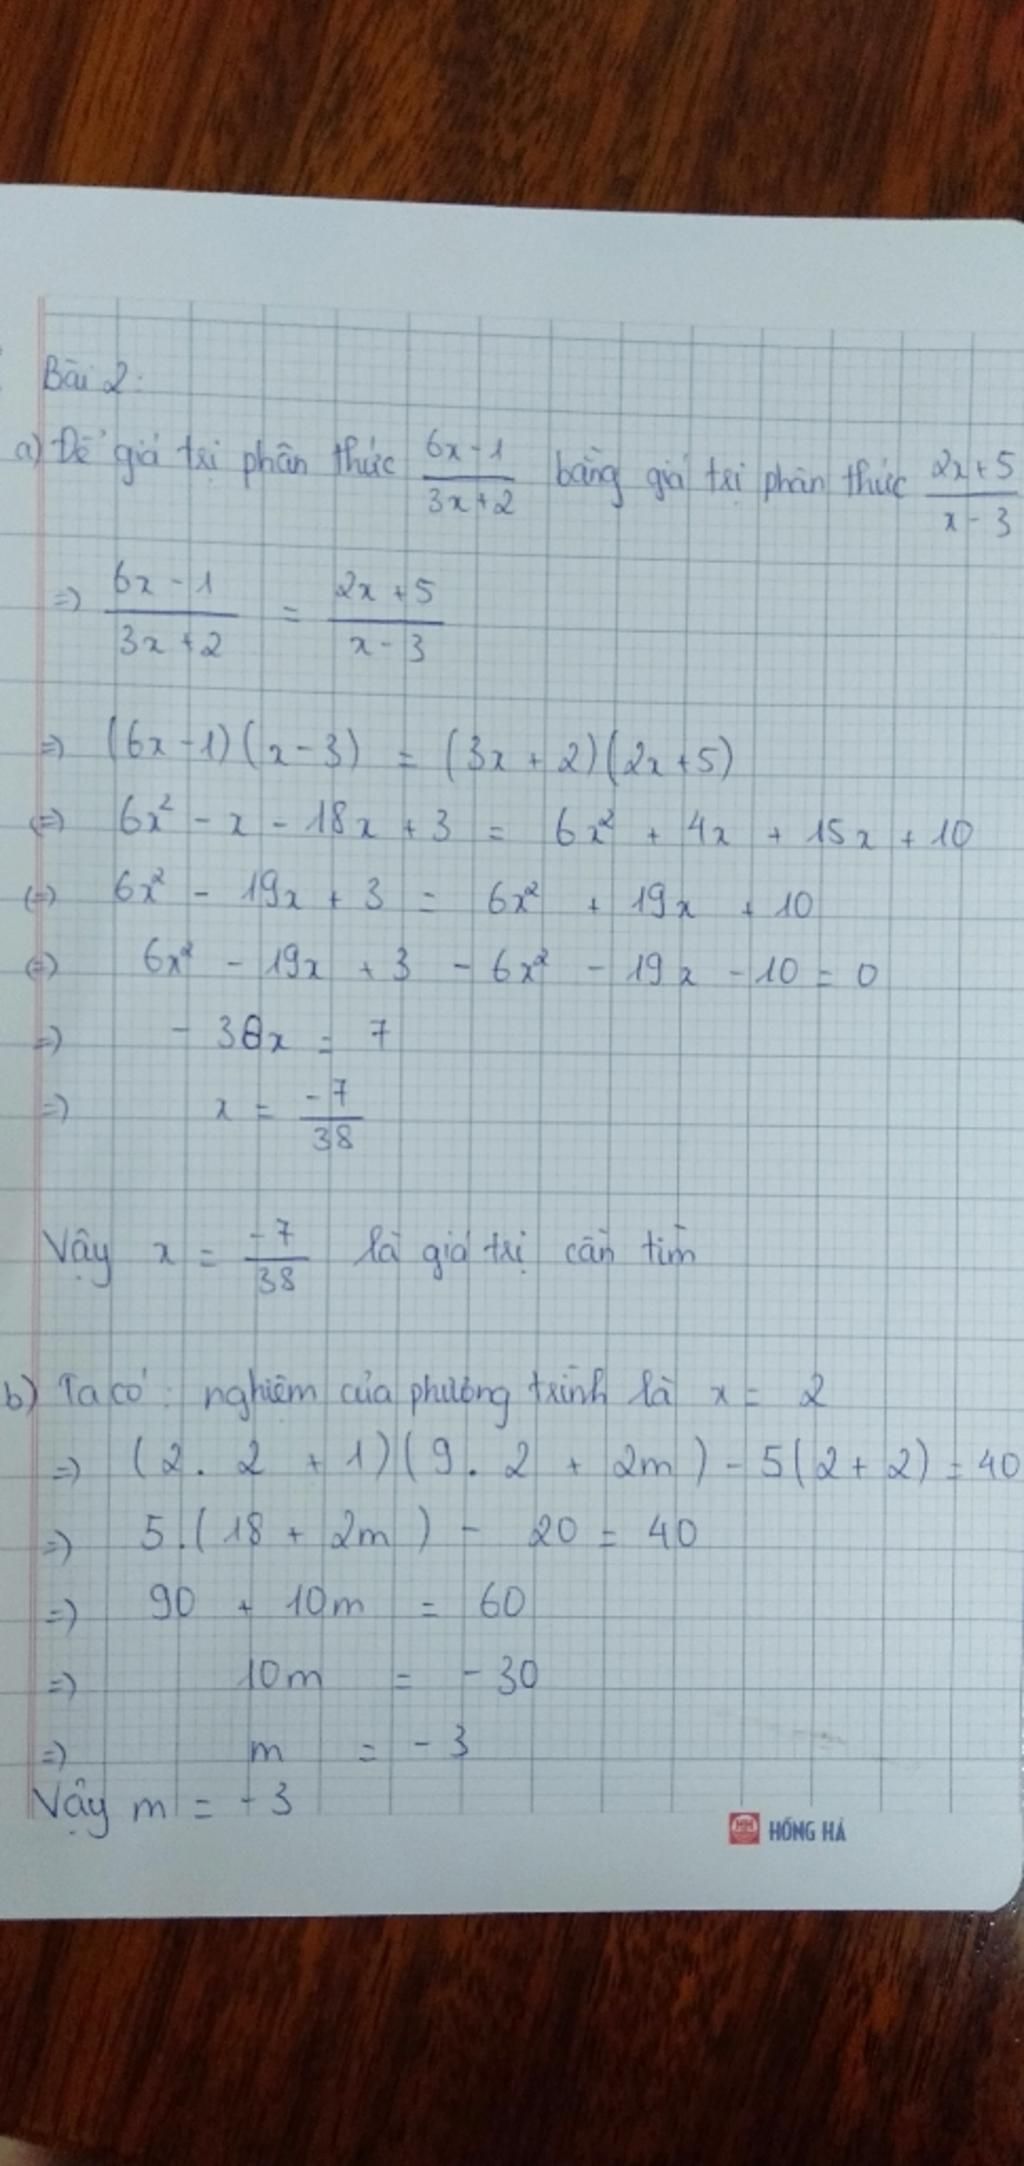 Bài 2:
a) Để giá trị phân thức (6x - 1)/(3x + 2) bằng giá trị phân thức (2x + 5)/(x - 3)
=> (6x - 1)/(3x + 2) = (2x + 5)/(x - 3)
=> (6x - 1)(x - 3) = (3x + 2)(2x + 5)
(=) 6x² - x - 18x + 3 = 6x² + 4x + 15x + 10
(=) 6x² - 19x + 3 = 6x² + 19x + 10
(=) 6x² - 19x + 3 - 6x² - 19x - 10 = 0
=) - 38x = 7
=) x = -7/38
Vậy x = -7/38 là giá trị cần tìm
b) Ta có: nghiệm của phương trình là x = 2
=) (2. 2 + 1)(9. 2 + 2m) - 5(2 + 2) = 40
=) 5.(18 + 2m) - 20 = 40
=) 90 + 10m = 60
=) 10m = - 30
=) m = - 3
Vậy m = - 3
HỒNG HÀ